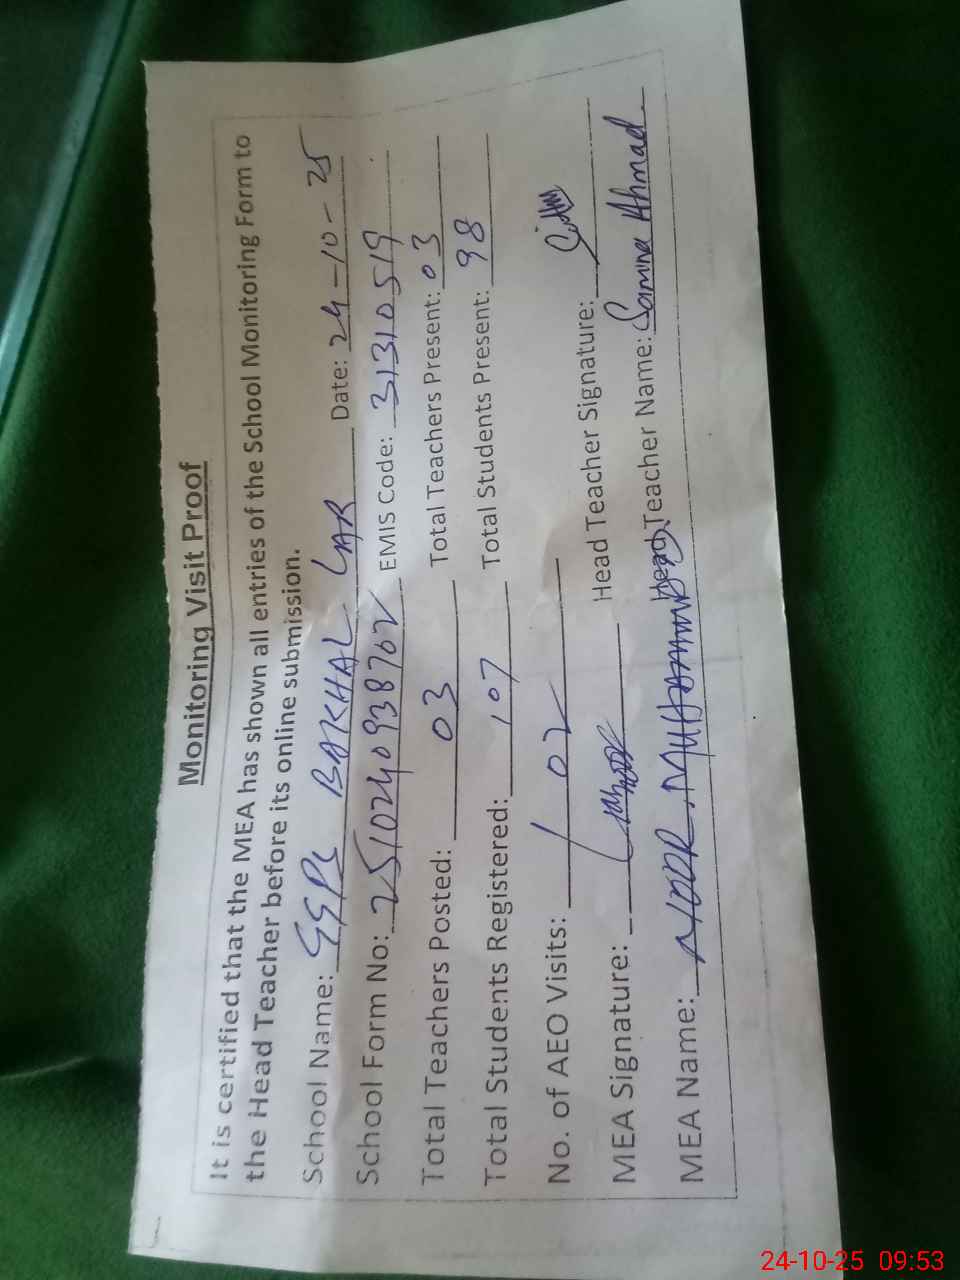 Monitoring Visit Proof
It is certified that the MEA has shown all entries of the School Monitoring Form to
the Head Teacher before its online submission.
School Name: GGPS BAKHAL LAR Date: 24-10-25
School Form No: 2510240938702 EMIS Code: 31310519
Total Teachers Posted: 03 Total Teachers Present: 03
Total Students Registered: 107 Total Students Present: 98
No. of AEO Visits: / 02
MEA Signature: Head Teacher Signature:
MEA Name: NOOR MUHAMMAD Head Teacher Name: Samina Ahmad
24-10-25 09:53